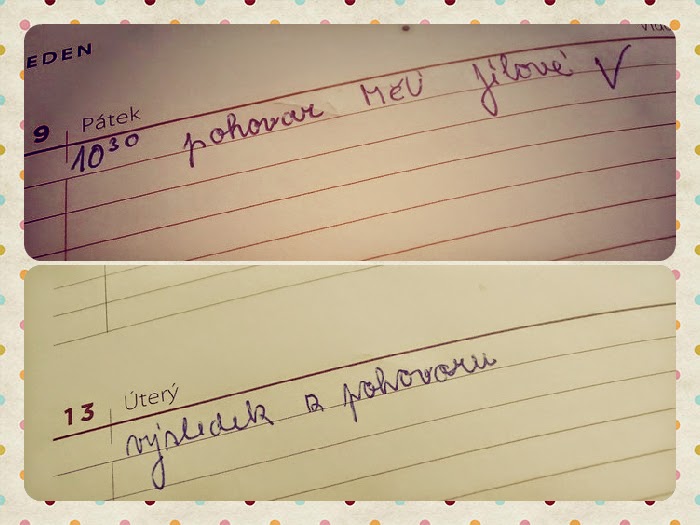 EDEN
9 Pátek
10³⁰ pohovor MěÚ Jílové V
13 Úterý
výsledek z pohovoru